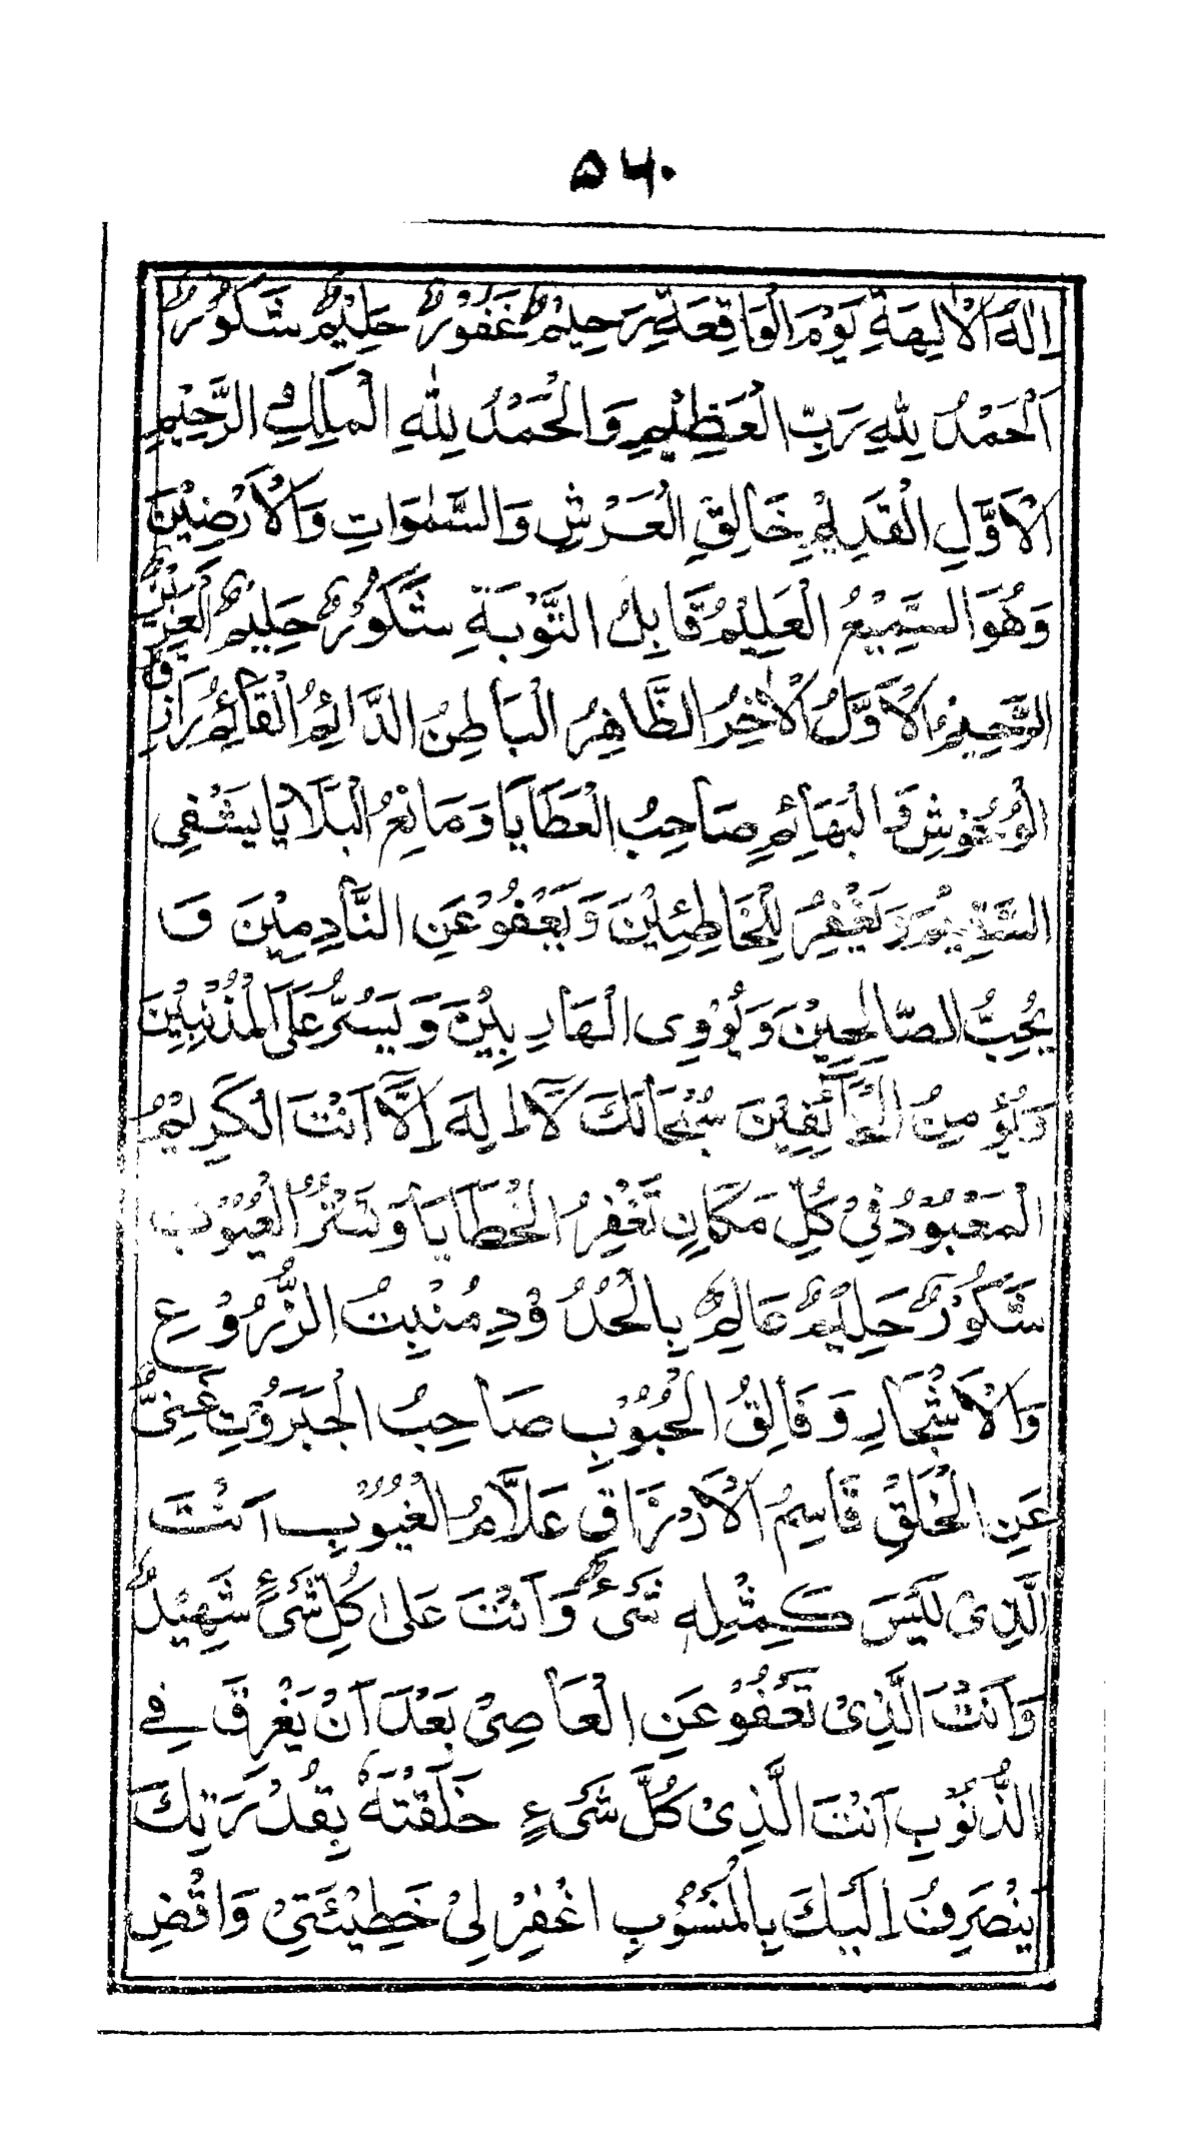 ۵۶۰
اِلٰهُ الْاٰلِهَةِ يَوْمَ الْوَاقِعَةِ رَحِيْمٌ غَفُوْرٌ حَلِيْمٌ شَكُوْرٌ
اَلْحَمْدُ لِلّٰهِ رَبِّ الْعَظِيْمِ وَالْحَمْدُ لِلّٰهِ الْمَلِكِ الرَّحِيْمِ
الْاَوَّلِ الْقَدِيْمِ خَالِقِ الْعَرْشِ وَالسَّمٰوَاتِ وَالْاَرْضِيْنَ
وَهُوَ السَّمِيْعُ الْعَلِيْمُ قَابِلُ التَّوْبَةِ شَكُوْرٌ حَلِيْمٌ الْعَزِيْزُ
الرَّحِيْمُ الْاَوَّلُ الْاٰخِرُ الظَّاهِرُ الْبَاطِنُ الدَّائِمُ الْقَائِمُ رَازِقُ
الْوُحُوْشِ وَالْبَهَائِمِ صَاحِبُ الْعَطَايَا وَمَانِعُ الْبَلَايَا يَشْفِى
السَّقِيْمَ وَيَغْفِرُ لِلْخَاطِئِيْنَ وَيَعْفُوْ عَنِ النَّادِمِيْنَ وَ
يُحِبُّ الصَّالِحِيْنَ وَيُؤْوِى الْهَارِبِيْنَ وَيَسْتُرُ عَلَى الْمُذْنِبِيْنَ
وَيُؤْمِنُ الْخَآئِفِيْنَ سُبْحَانَكَ لَآ اِلٰهَ اِلَّا اَنْتَ الْكَرِيْمُ
الْمَعْبُوْدُ فِيْ كُلِّ مَكَانٍ تَغْفِرُ الْخَطَايَا وَتَسْتُرُ الْعُيُوْبَ
شَكُوْرٌ حَلِيْمٌ عَالِمٌ بِالْحُدُوْدِ مُنْبِتُ الزُّرُوْعِ
وَالْاَشْجَارِ وَفَالِقُ الْحُبُوْبِ صَاحِبُ الْجَبَرُوْتِ غَنِيٌّ
عَنِ الْخَلْقِ قَاسِمُ الْاَرْزَاقِ عَلَّامُ الْغُيُوْبِ اَنْتَ
الَّذِىْ لَيْسَ كَمِثْلِهٖ شَىْءٌ وَاَنْتَ عَلىٰ كُلِّ شَىْءٍ شَهِيْدٌ
وَاَنْتَ الَّذِىْ تَعْفُوْ عَنِ الْعَاصِىْ بَعْدَ اَنْ يَغْرِقَ فِے
الذُّنُوْبِ اَنْتَ الَّذِىْ كُلَّ شَىْءٍ خَلَقْتَهٗ بِقُدْرَتِكَ
يَنْصَرِفُ اِلَيْكَ بِالْمَنْسُوْبِ اغْفِرْ لِىْ خَطِيْئَتِىْ وَاقْضِ